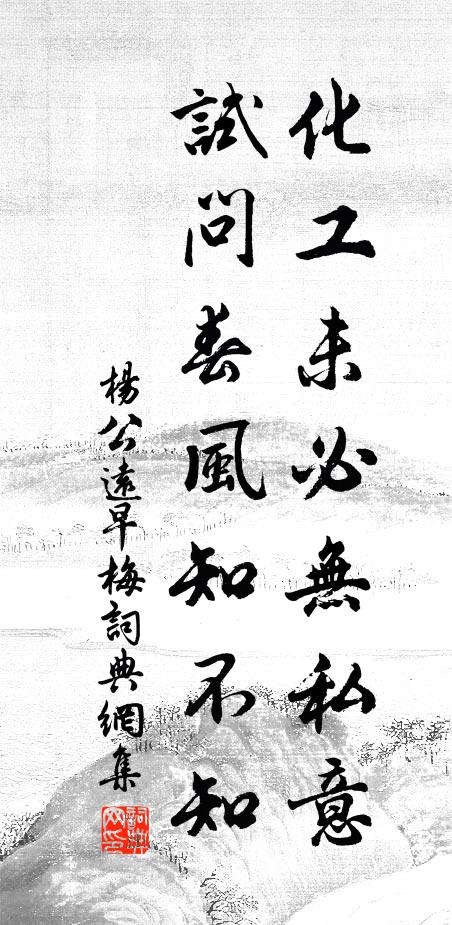 化工未必無私意
試問春風知不知
楊公遠早梅詞典網集